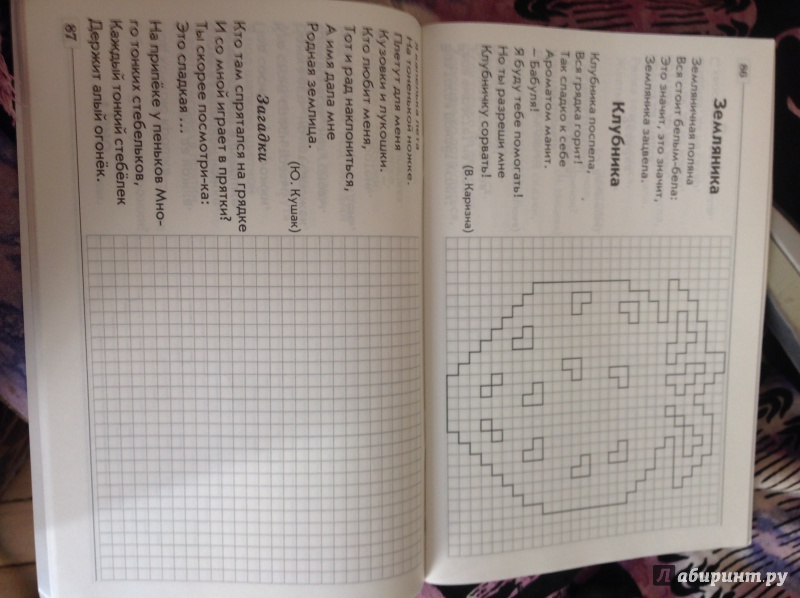 86
Земляника
Земляничная поляна
Вся стоит белым-бела:
Это значит, это значит,
Земляника зацвела.
Клубника
Клубника поспела,
Вся грядка горит!
Так сладко к себе
Ароматом манит.
– Бабуля!
Я буду тебе помогать!
Но ты разреши мне
Клубничку сорвать!
(В. Каризна)
На тоненькой ножке.
Плетут для меня
Кузовки и лукошки.
Кто любит меня,
Тот и рад наклониться,
А имя дала мне
Родная землица.
(Ю. Кушак)
Загадки
Кто там спрятался на грядке
И со мной играет в прятки?
Ты скорее посмотри-ка:
Это сладкая ...
На припёке у пеньков Мно-
го тонких стебельков,
Каждый тонкий стебёлек
Держит алый огонёк.
87
Лабиринт.ру